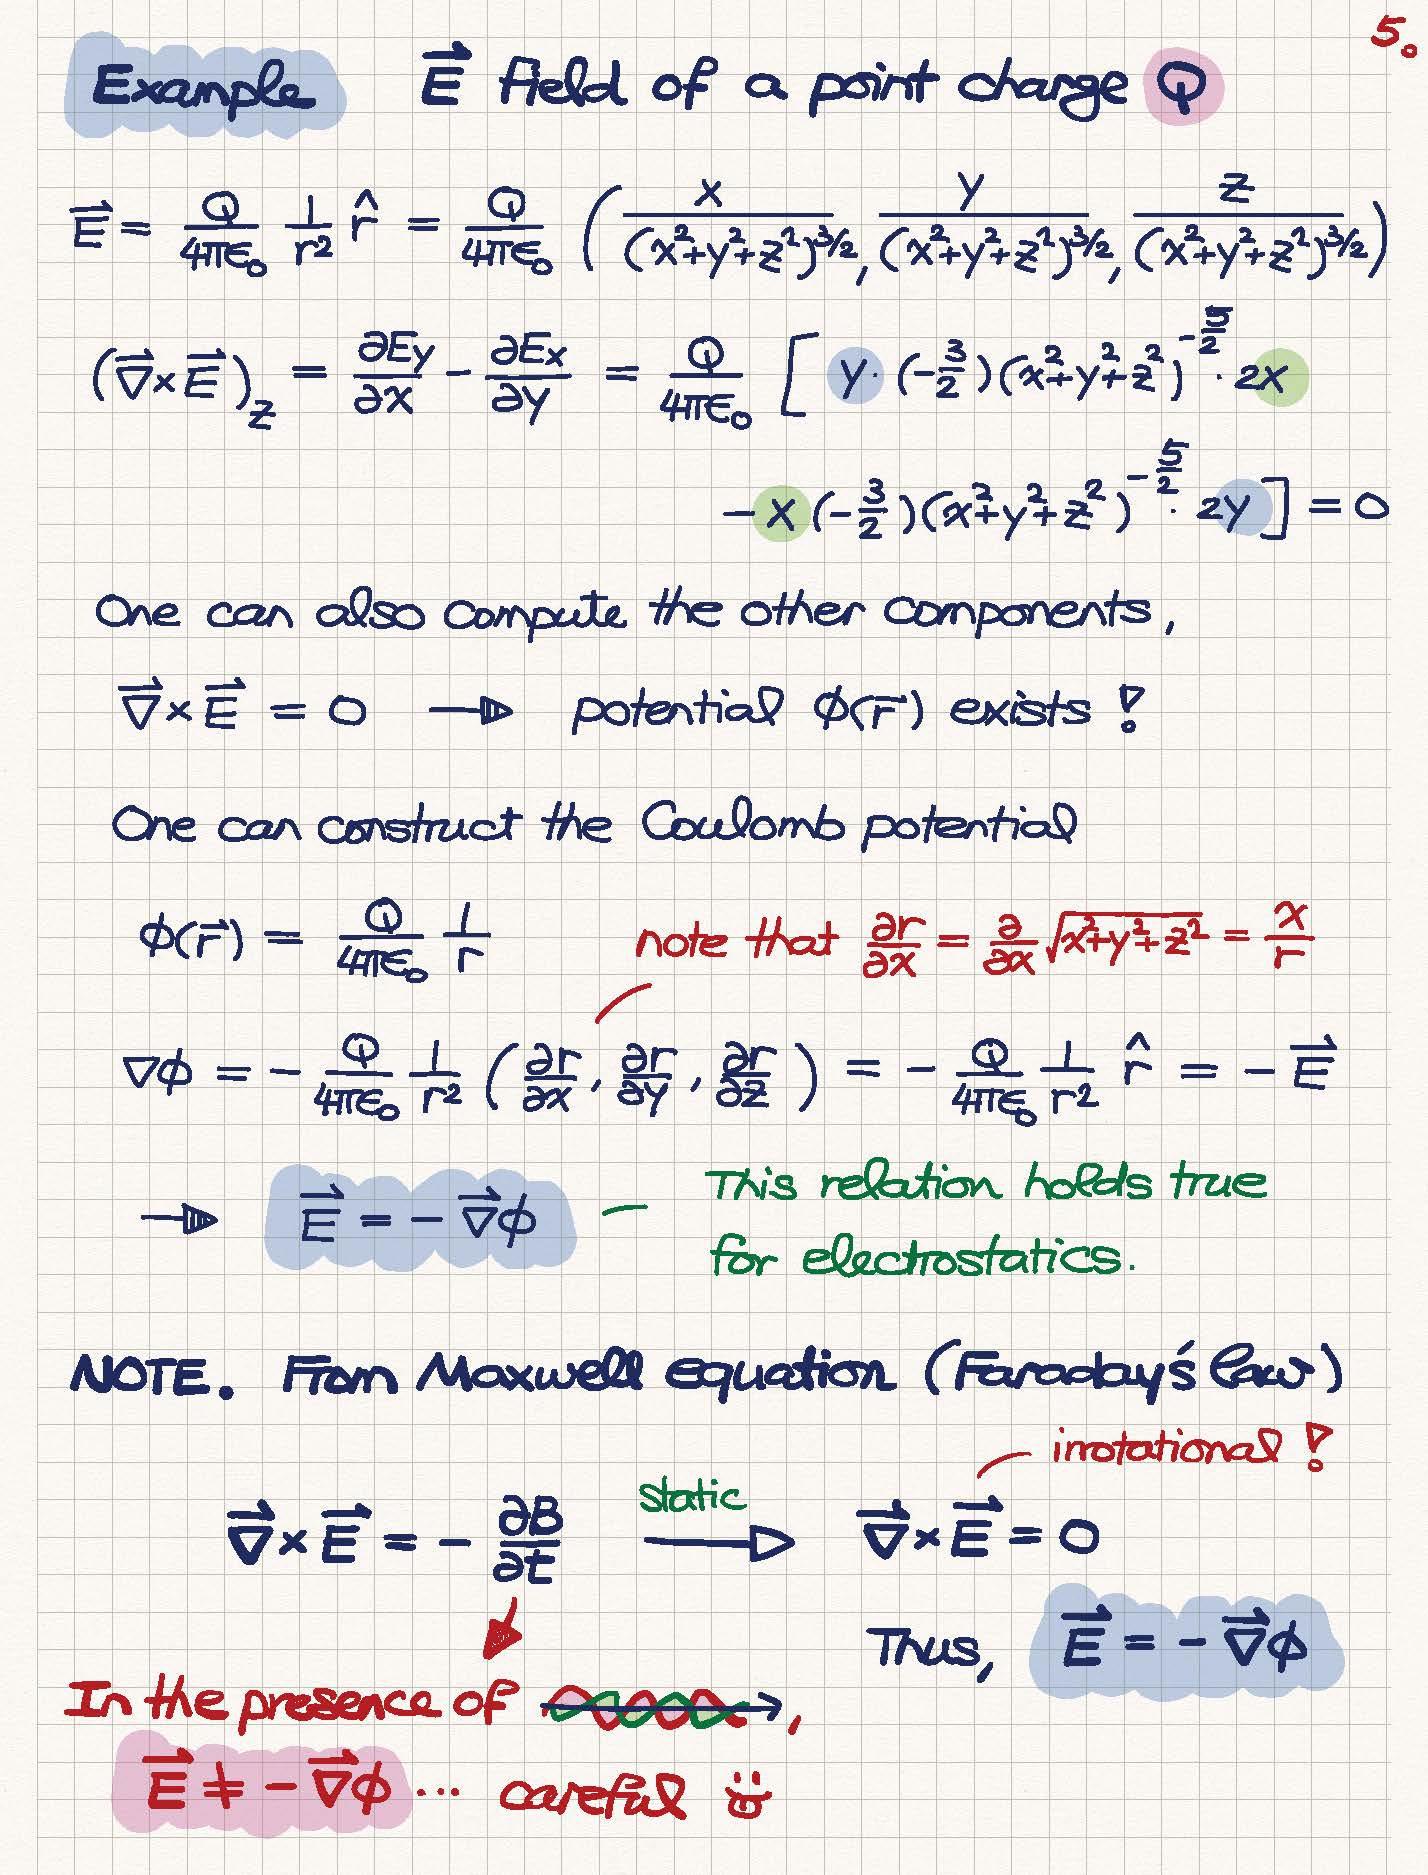 5.
Example E⃗ field of a point charge Q
E⃗ = Q/(4πε₀) 1/r² r̂ = Q/(4πε₀) ( x/(x²+y²+z²)^(3/2), y/(x²+y²+z²)^(3/2), z/(x²+y²+z²)^(3/2) )
(∇⃗×E⃗)_z = ∂Ey/∂x - ∂Ex/∂y = Q/(4πε₀) [ y·(-3/2)(x²+y²+z²)^(-5/2)·2x
-x(-3/2)(x²+y²+z²)^(-5/2)·2y ] = 0
One can also compute the other components,
∇⃗×E⃗ = 0 → potential ϕ(r⃗) exists !
One can construct the Coulomb potential
ϕ(r⃗) = Q/(4πε₀) 1/r note that ∂r/∂x = ∂/∂x √(x²+y²+z²) = x/r
∇ϕ = - Q/(4πε₀) 1/r² (∂r/∂x, ∂r/∂y, ∂r/∂z) = - Q/(4πε₀) 1/r² r̂ = - E⃗
→ E⃗ = - ∇⃗ϕ This relation holds true
for electrostatics.
NOTE. From Maxwell equation (Faraday's law)
irrotational !
∇⃗×E⃗ = - ∂B/∂t static → ∇⃗×E⃗ = 0
Thus, E⃗ = - ∇⃗ϕ
In the presence of ,
E⃗ ≠ - ∇⃗ϕ ... careful